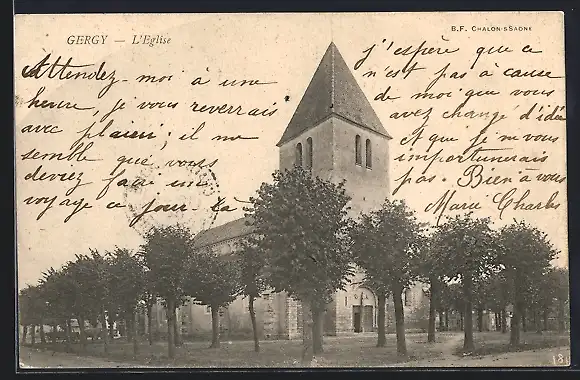 GERGY — L'Eglise
B.F. CHALON-S-SAONE
Attendez-moi à une
heure, je vous reverrais
avec plaisir; il me
semble que vous
devriez faire un
voyage ce jour-là
j'espère que ce
n'est pas à cause
de moi que vous
avez changé d'idée
et que je ne vous
importunerais
pas. Bien à vous
Marie Charles